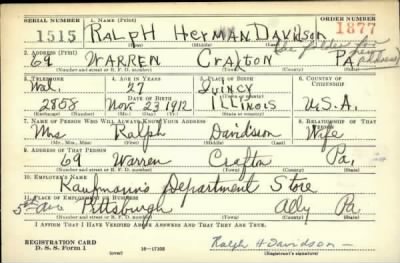 SERIAL NUMBER 1. NAME (Print) ORDER NUMBER
1515 RALPH HERMAN DAVIDSON 1877
(First) (Middle) (Last)
2. ADDRESS (Print)
69 WARREN CRAFTON PA.
(Number and street or R. F. D. number) (Town) (County) (State)
3. TELEPHONE 4. AGE IN YEARS 5. PLACE OF BIRTH 6. COUNTRY OF CITIZENSHIP
Wal. 27 QUINCY
DATE OF BIRTH
2858 Nov. 23 1912 ILLINOIS U.S.A.
(Exchange) (Number) (Mo.) (Day) (Yr.) (State or country)
7. NAME OF PERSON WHO WILL ALWAYS KNOW YOUR ADDRESS 8. RELATIONSHIP OF THAT PERSON
Mrs Ralph Davidson Wife
(Mr., Mrs., Miss) (First) (Middle) (Last)
9. ADDRESS OF THAT PERSON
69 Warren Crafton Pa.
(Number and street or R. F. D. number) (Town) (County) (State)
10. EMPLOYER'S NAME
Kaufmann's Department Store
11. PLACE OF EMPLOYMENT OR BUSINESS
5th Ave Pittsburgh Ally Pa.
(Number and street or R. F. D. number) (Town) (County) (State)
I AFFIRM THAT I HAVE VERIFIED ABOVE ANSWERS AND THAT THEY ARE TRUE.
REGISTRATION CARD
D. S. S. Form 1 (over) 16—17105 Ralph H Davidson
(Registrant's signature)